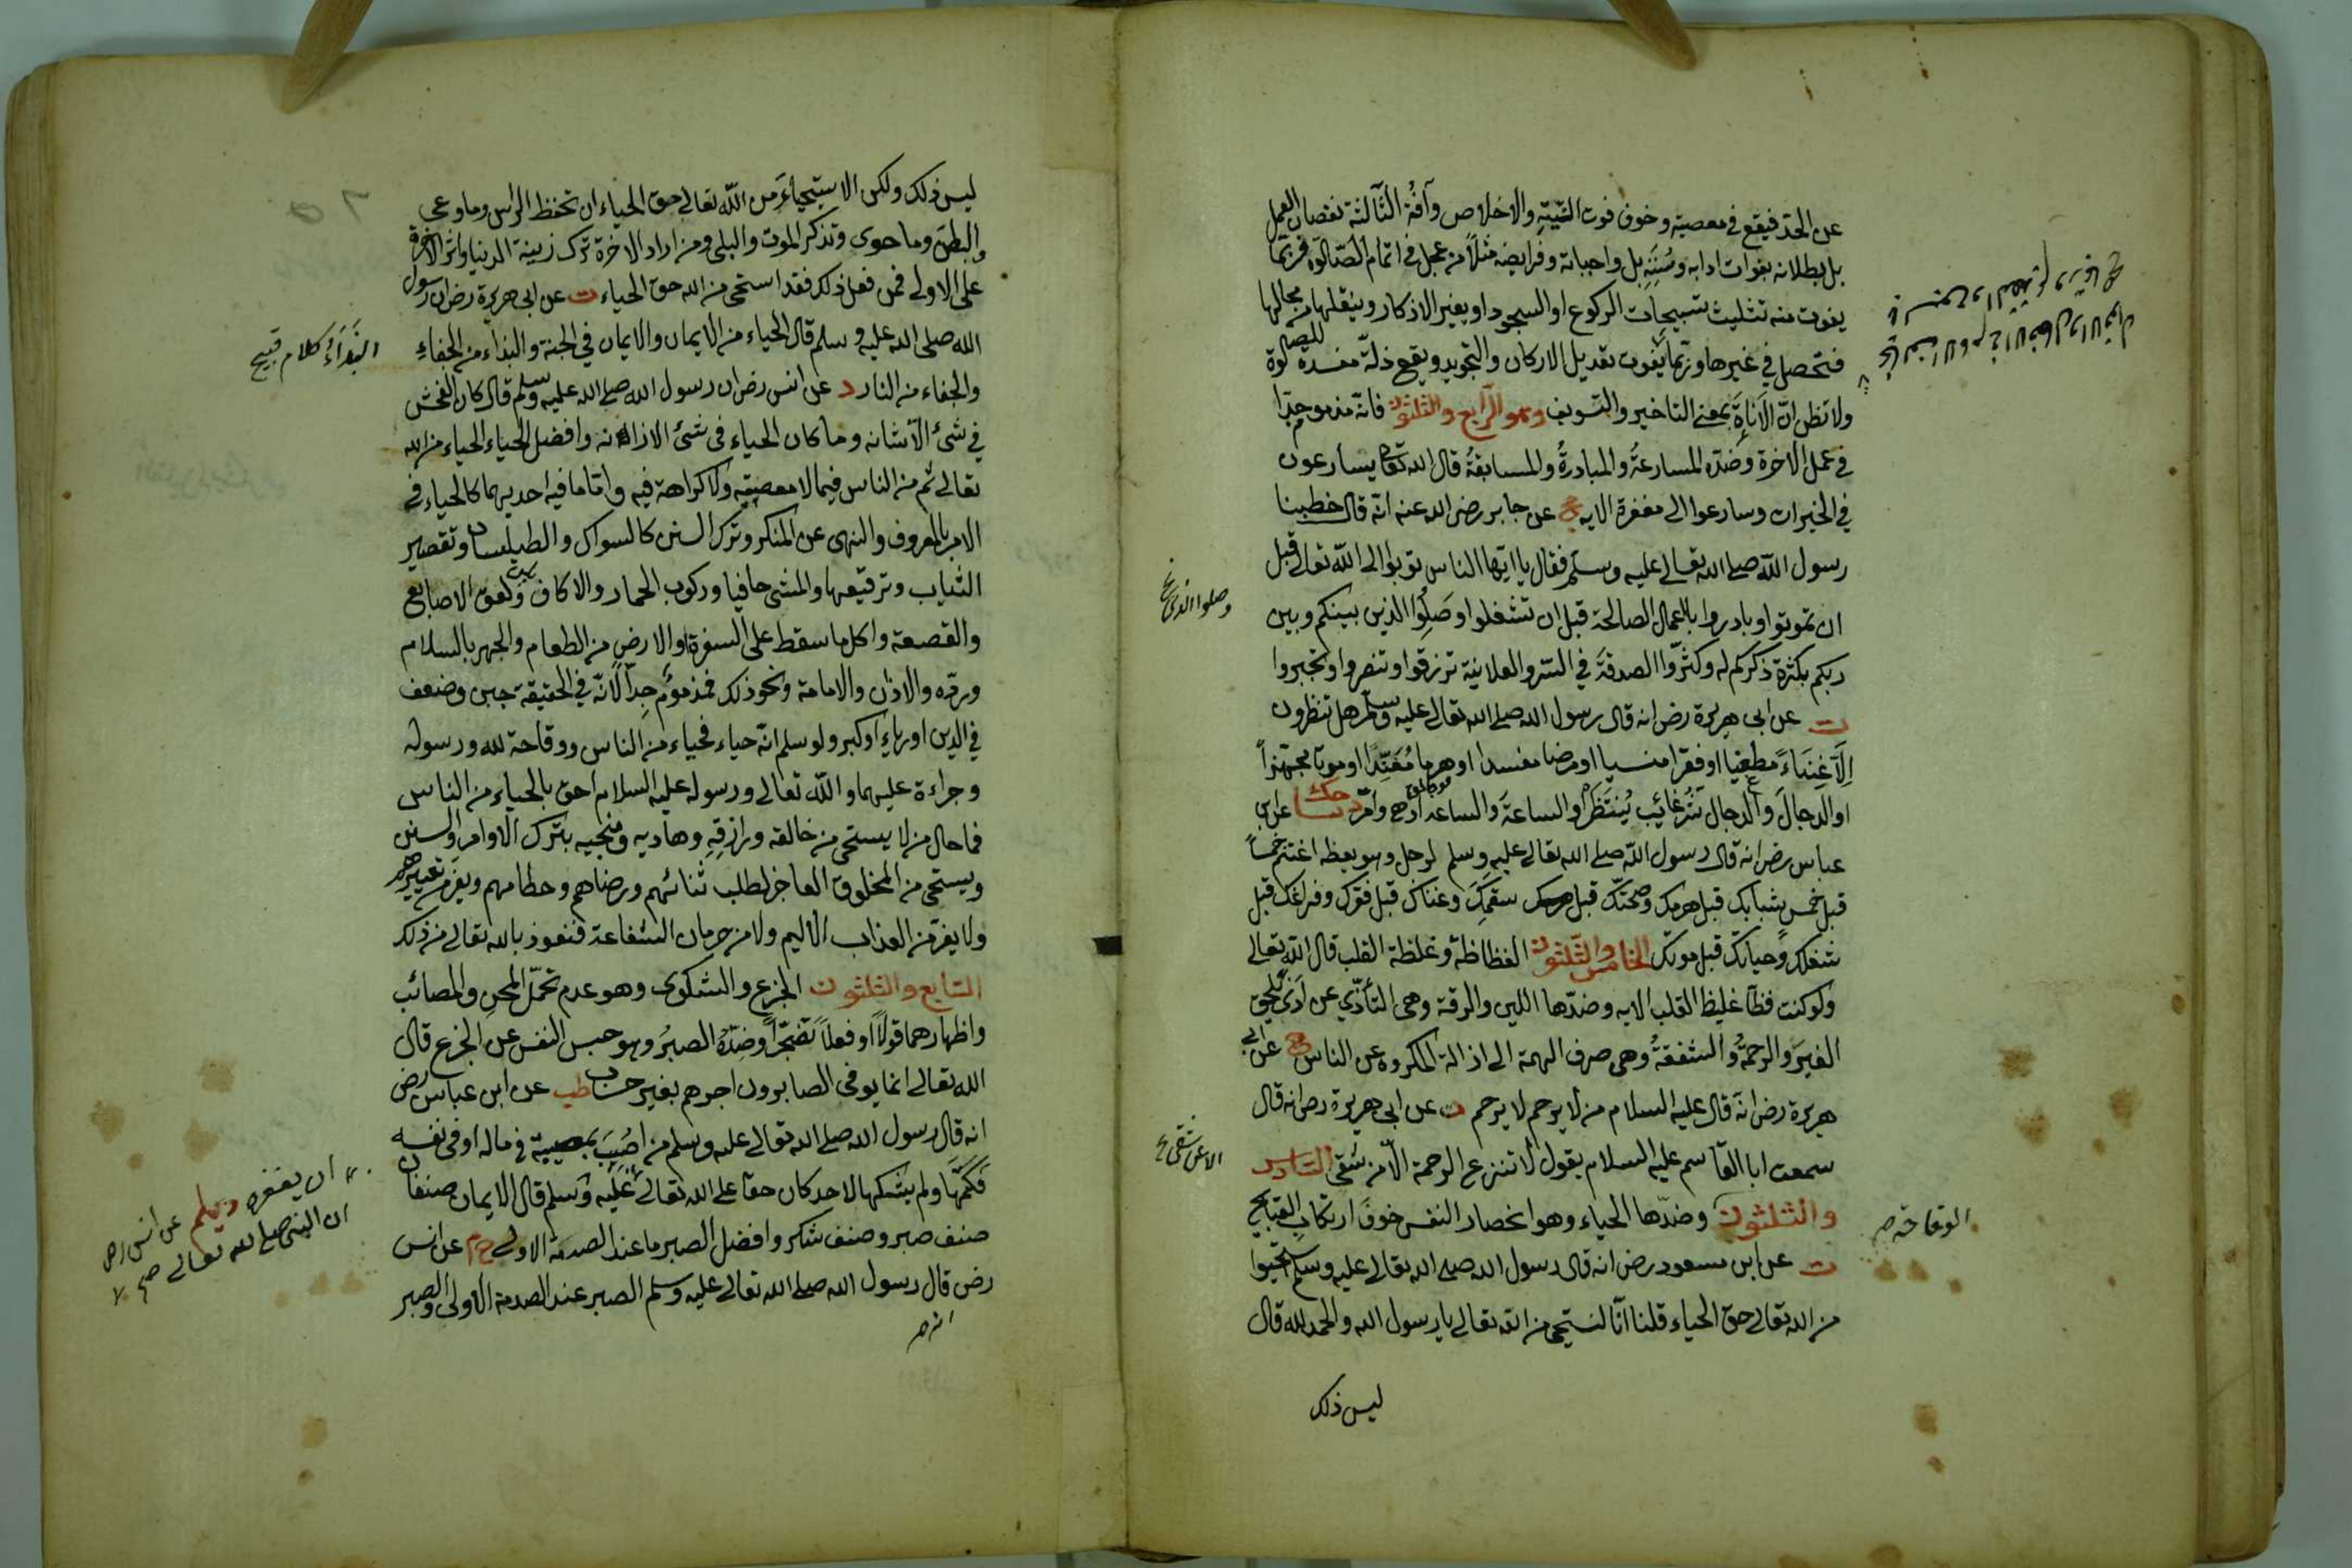 عن الحد فيقع في معصية وخوف فوت النّيّة والاخلاص وآفة الثّالثة نقصان العمل
بل بطلانه بفوات ادابه وسُنَنِه بل واجباته وفرايضه مثلاً من عجل في اتمام الصّلوة فربّما
يفوت منه تثليث تسبيحات الركوع او السجود او يغير الاذكار وينقلها من محالها
فتحصل في غيرها وربّما يفوت تعديل الاركان والتجويد ويقع ذلّة مفسدة للصلوة
ولا تظن انّ الاَناةَ بمعنى التاخير والتّسويف وهو الرّابع والثلثون فانّه مذموم جدّا
في عمل الاخرة وضدّه المسارعةُ والمبادرةُ والمسابقةُ قال الله تعالى يسارعون
في الخيرات وسارعوا الى مغفرة الايه مج عن جابر رضى الله عنه انّه قال خطبنا
رسول الله صلى الله تعالى عليه وسلّم فقال يا ايّها الناس توبوا الى الله تعالى قبل
ان تموتوا وبادروا بالاعمال الصالحة قبل ان تشغلوا وصَلِوُا الذين بينكم وبين
وصلوا الذى خ
ربكم بكثرة ذكركم له وكثرّوا الصدقةَ في السّر والعلانية ترزقوا وتنصروا وتجبروا
ت عن ابى هريرة رض انه قال رسول الله صلى الله تعالى عليه وسلّم هل تنظرون
اِلّا غِنَاءً مطغيا او فقرا منسيا او مرضا مفسدا او هرما مُفَنِّدًا او موتا مجهزاً
او الدجالَ والدجال شرّ غائب يُنتَظَرُ او الساعةَ والساعة ادهى وامرّ دنيا حك عن ابن
عباس رض انه قال رسول الله صلى الله تعالى عليه وسلم لرجل وهو يعظه اغتنم خمساً
قبل خمس شبابك قبل هرمك وصحّتك قبل سقمك وغناك قبل فقرك وفراغك قبل
شغلك وحياتك قبل موتك الخامس والثّلثون الفظاظة وغلظة القلب قال الله تعالى
ولو كنت فظّا غليظ القلب الايه وضدّها اللين والرقة وهى التأذّي عن اذىً يلحق
الغيرَ والرحمةُ والشفقةُ وهى صرف الهمة الى ازالة المكروه عن الناس خ م عن ابى
هريرة رض انّه قال عليه السلام من لا يرحم لا يرحم ت عن ابى هريرة رض انه قال
سمعت ابا القاسم عليه السلام يقول لا تنزع الرحمة الّا من شقى السّادس
الا عن شقى خ
والثلثون وضدّها الحياء وهو انحصار النفس خوفَ ارتكابِ القبايح
الوقاحة صح
ت عن ابن مسعود رض انه قال رسول الله صلى الله تعالى عليه وسلم استحيوا
من الله تعالى حقّ الحياء قلنا انّا لنستحيى من الله تعالى يا رسول الله والحمد لله قال
ليس ذلك
ليس ذلك ولكن الاستحياءَ من الله تعالى حق الحياء ان تحفظ الراس وما وعى
والبطن وما حوى وتذكر الموت والبلى ومن اراد الاخرة ترك زينة الدنيا واثر الاخرة
على الاولى فمن فعل ذلك فقد استحى من الله حق الحياء ت عن ابى هريرة رض ان رسول
الله صلى الله عليه وسلم قال الحياء من الايمان والايمان في الجنة والبذاء من الجفاءِ
البَذَاءُ كلام قبيح
والجفاء من النار د عن انس رض ان رسول الله صلى الله عليه وسلم قال ما كان الفحش
في شئ الّا شانه وما كان الحياء فى شئ الا زانه وافضل الحياء الحياء من الله
تعالى ثم من الناس فيما لا معصية ولا كراهة فيه وامّا ما فيه احديهما كالحياء في
الامر بالمعروف والنهى عن المنكر وترك السنن كالسواك والطيلسان وتقصير
الثياب وترقيعها والمشى حافيا وركوب الحمار والاكاف ولعق الاصابع
والقصعة واكل ما سقط على السفرة او الارض من الطعام والجهر بالسلام
وردّه والاذان والامامة ونحو ذلك فمذموم جِداً لانّه في الحقيقة جبن وضعف
في الدين او رياءٍ او كبر ولو سلم انّه حياء فحياء من الناس ووقاحة لله ورسوله
وجراءة عليهما والله تعالى ورسوله عليه السلام احق بالحياء من الناس
فما حال من لا يستحى من خالقه ورازقِهِ وهاديه ومنجيه بترك الاوامر والسنن
ويستحى من المخلوق العاجز لطلب ثنائهم ورضاهم وحطامهم ويفر من تعييرهم
ولا يفر من العذاب الاليم ولا من حرمان الشفاعة فنعوذ بالله تعالى من ذلك
السّابع والثلثون الجزع والشكوى وهو عدم تحمّل المحنِ والمصائب
واظهارهما قولاً او فعلاً تضجّراً وضِدّهُ الصبرُ وهو حبس النفس عن الجزع قال
الله تعالى انما يوفى الصابرون اجرهم بغير حساب طب عن ابن عباس رض
انه قال رسول الله صلى الله تعالى عليه وسلم من اُصيبَ بمصيبة في ماله او فى نفسه
فكتمها ولم يشكها لاحد كان حقا على الله تعالى عليه وسلم قال الايمان نصفان
ان يغفره ديلم عن انس رض
ان النبى صلى الله تعالى صح
صنف صبر وصنف شكر وافضل الصبر ما عند الصدمة الاولى خ م عن انس
رض قال رسول الله صلى الله تعالى عليه وسلم الصبر عند الصدمة الاولى والصبر
انه صح